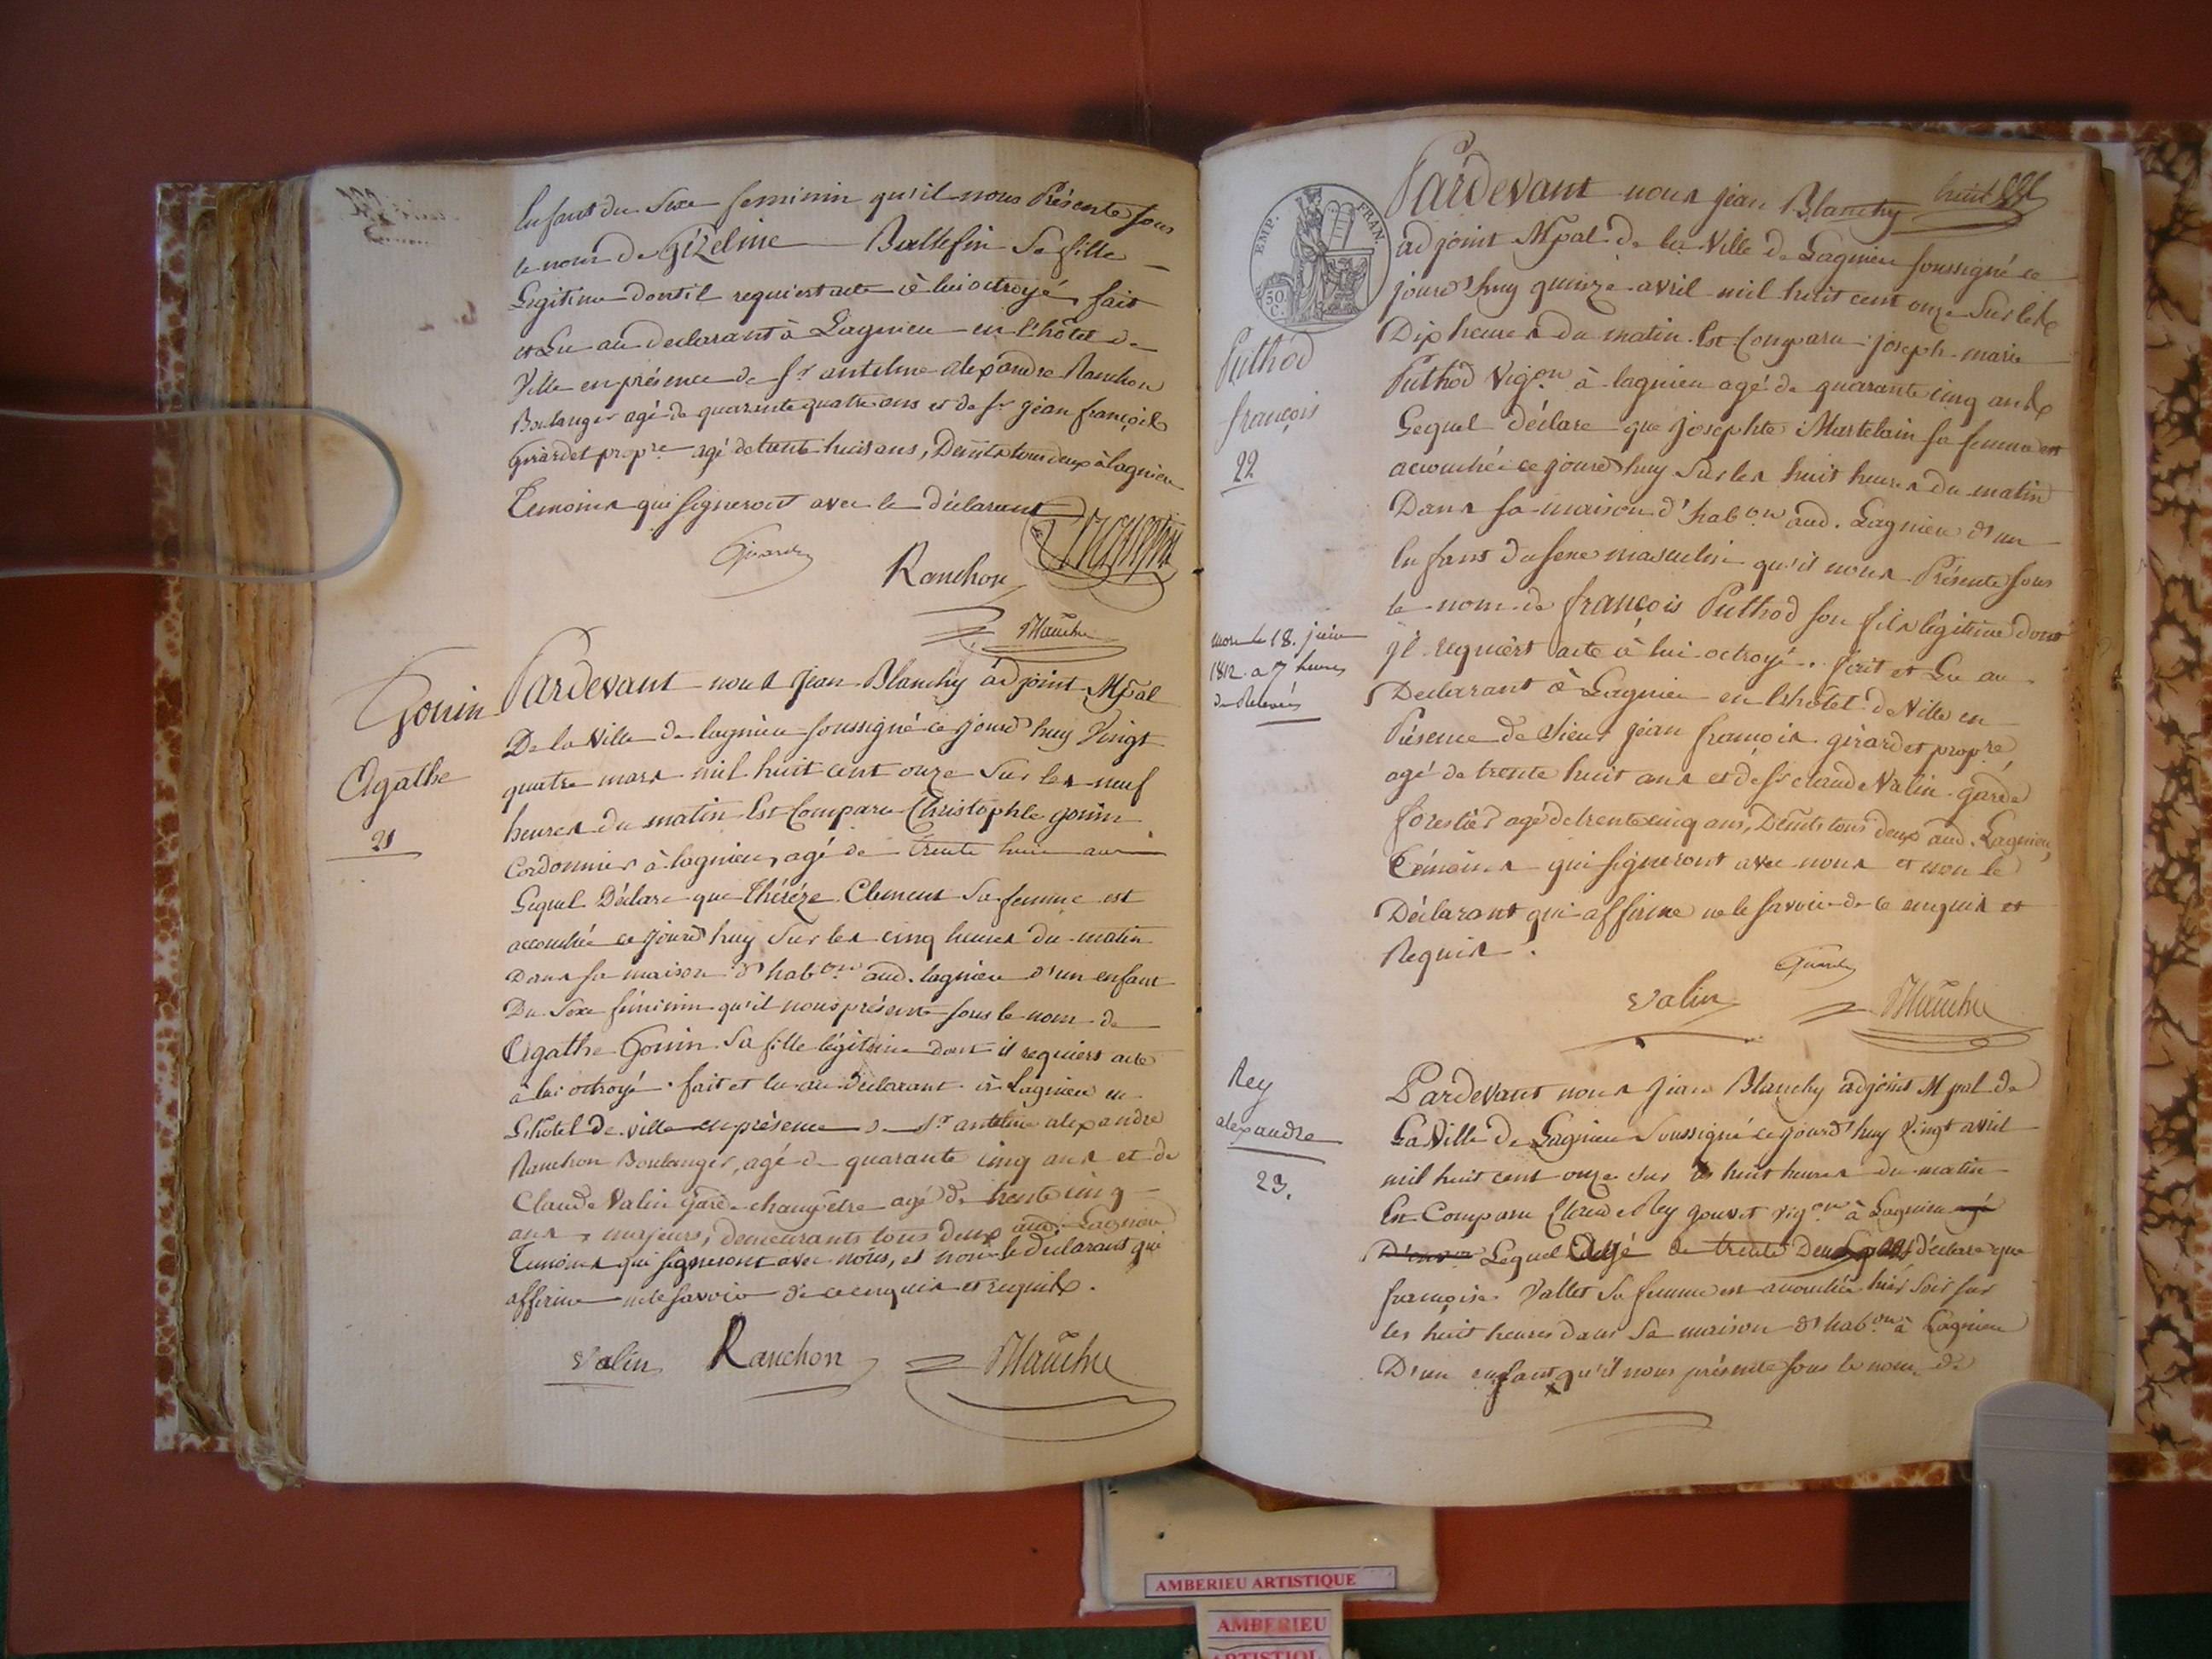 Enfant du Sexe feminin qu'il nous Présente sous
le nom de Gizeline Ballefin Sa fille
Legitime dont il requiert acte à lui octroyé, fait
et Lu au declarant à Lagnieu en l'hôtel de
Ville en présence de Sr antelme alexandre Ranchon
Boulanger agé de quarante quatre ans et de Sr jean françois
Girardet propre agé de trente huit ans, Demts tous deux à lagnieu
Temoins qui signeront avec le déclarant
Ranchon
Blanchy
Gonin
Agathe
21
Pardevant nous Jean Blanchy adjoint Mpal
De la Ville de lagnieu soussigné ce jourd'huy Vingt
quatre mars mil huit cent onze Sur les neuf
heures du matin Est Comparu Christophle gonin
Cordonnier à lagnieu, agé de trente huit ans
Lequel Déclare que Thérèze Clement Sa femme est
accouchée ce jourd'huy Sur les cinq heures du matin
Dans sa maison d'habon aud. lagnieu d'un enfant
Du Sexe féminin qu'il nous présente sous le nom de
Agathe Gonin Sa fille légitime dont il requiert acte
à lui octroyé. fait et lu au déclarant à Lagnieu en
L'hôtel de ville en présence de Sr antelme alexandre
Ranchon Boulanger, agé de quarante cinq ans et de
Claude Valin garde champêtre agé de trente cinq
ans, majeurs, demeurants tous deux aud. Lagnieu
Temoins qui signeront avec nous, et non le déclarant qui
affirme ne le savoir de ce enquis et requis.
Valin Ranchon Blanchy
EMP. FRAN.
50 C.
huit
Pardevant nous jean Blanchy
adjoint Mpal de la Ville de Lagnieu soussigné ce
jourd'huy quinze avril mil huit cent onze Sur les
Dix heures du matin Est Comparu joseph marie
Puthod Vigon à lagnieu agé de quarante cinq ans
Lequel déclare que Josephte Martelain sa femme est
accouchée ce jourd'huy Sur les huit heures du matin
Dans sa maison d'habon aud. Lagnieu d'un
Enfant du sexe masculin qu'il nous Présente sous
le nom de françois Puthod son fils légitime dont
il requiert acte à lui octroyé. Fait et Lu au
Declarant à Lagnieu en l'hôtel de Ville en
Présence de Sieur jean françois girardet propre,
agé de trente huit ans et de Sr claude Valin garde
forestier agé de trente cinq ans, Demts tous deux aud. Lagnieu,
Témoins qui signeront avec nous et non le
Déclarant qui affirme ne le savoir de ce enquis et
Requis.
Puthod
françois
22
mort le 18. juin
1812 a 7 heures
de Relevée
Valin Blanchy
Rey
alexandre
23.
Pardevant nous Jean Blanchy adjoint Mpal de
La Ville de Lagnieu Soussigné ce jourd'huy Vingt avril
mil huit cent onze sur les huit heures du matin
Est Comparu Claude Rey gouvet vigon à Lagnieu agé
Lequel Agé de trente Deux ans déclare que
françoise Vallet Sa femme est accouchée hier Soir sur
les huit heures dans Sa maison d'habon à Lagnieu
D'un enfant qu'il nous présente sous le nom de
AMBERIEU ARTISTIQUE
AMBERIEU